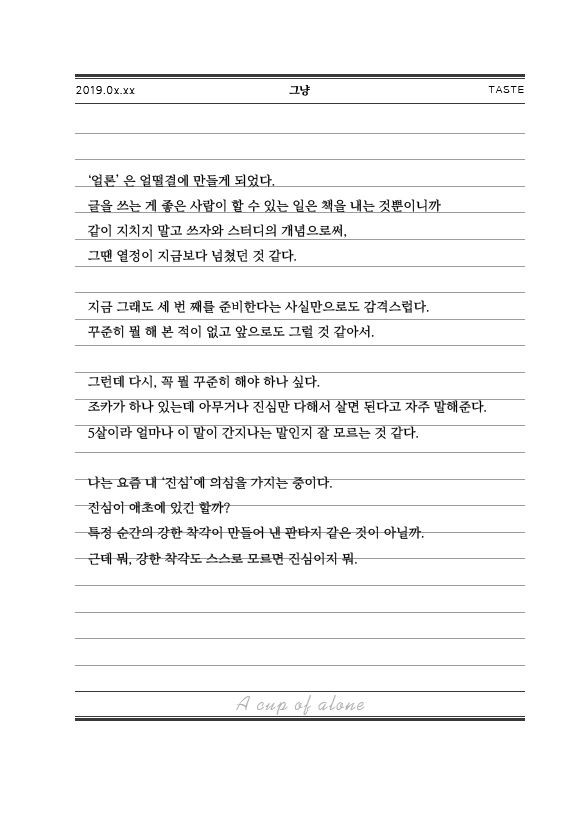 2019.0x.xx 그냥 TASTE
‘얼론’ 은 얼떨결에 만들게 되었다.
글을 쓰는 게 좋은 사람이 할 수 있는 일은 책을 내는 것뿐이니까
같이 지치지 말고 쓰자와 스터디의 개념으로써,
그땐 열정이 지금보다 넘쳤던 것 같다.
지금 그래도 세 번 째를 준비한다는 사실만으로도 감격스럽다.
꾸준히 뭘 해 본 적이 없고 앞으로도 그럴 것 같아서.
그런데 다시, 꼭 뭘 꾸준히 해야 하나 싶다.
조카가 하나 있는데 아무거나 진심만 다해서 살면 된다고 자주 말해준다.
5살이라 얼마나 이 말이 간지나는 말인지 잘 모르는 것 같다.
나는 요즘 내 ‘진심’에 의심을 가지는 중이다.
진심이 애초에 있긴 할까?
특정 순간의 강한 착각이 만들어 낸 판타지 같은 것이 아닐까.
근데 뭐, 강한 착각도 스스로 모르면 진심이지 뭐.
A cup of alone